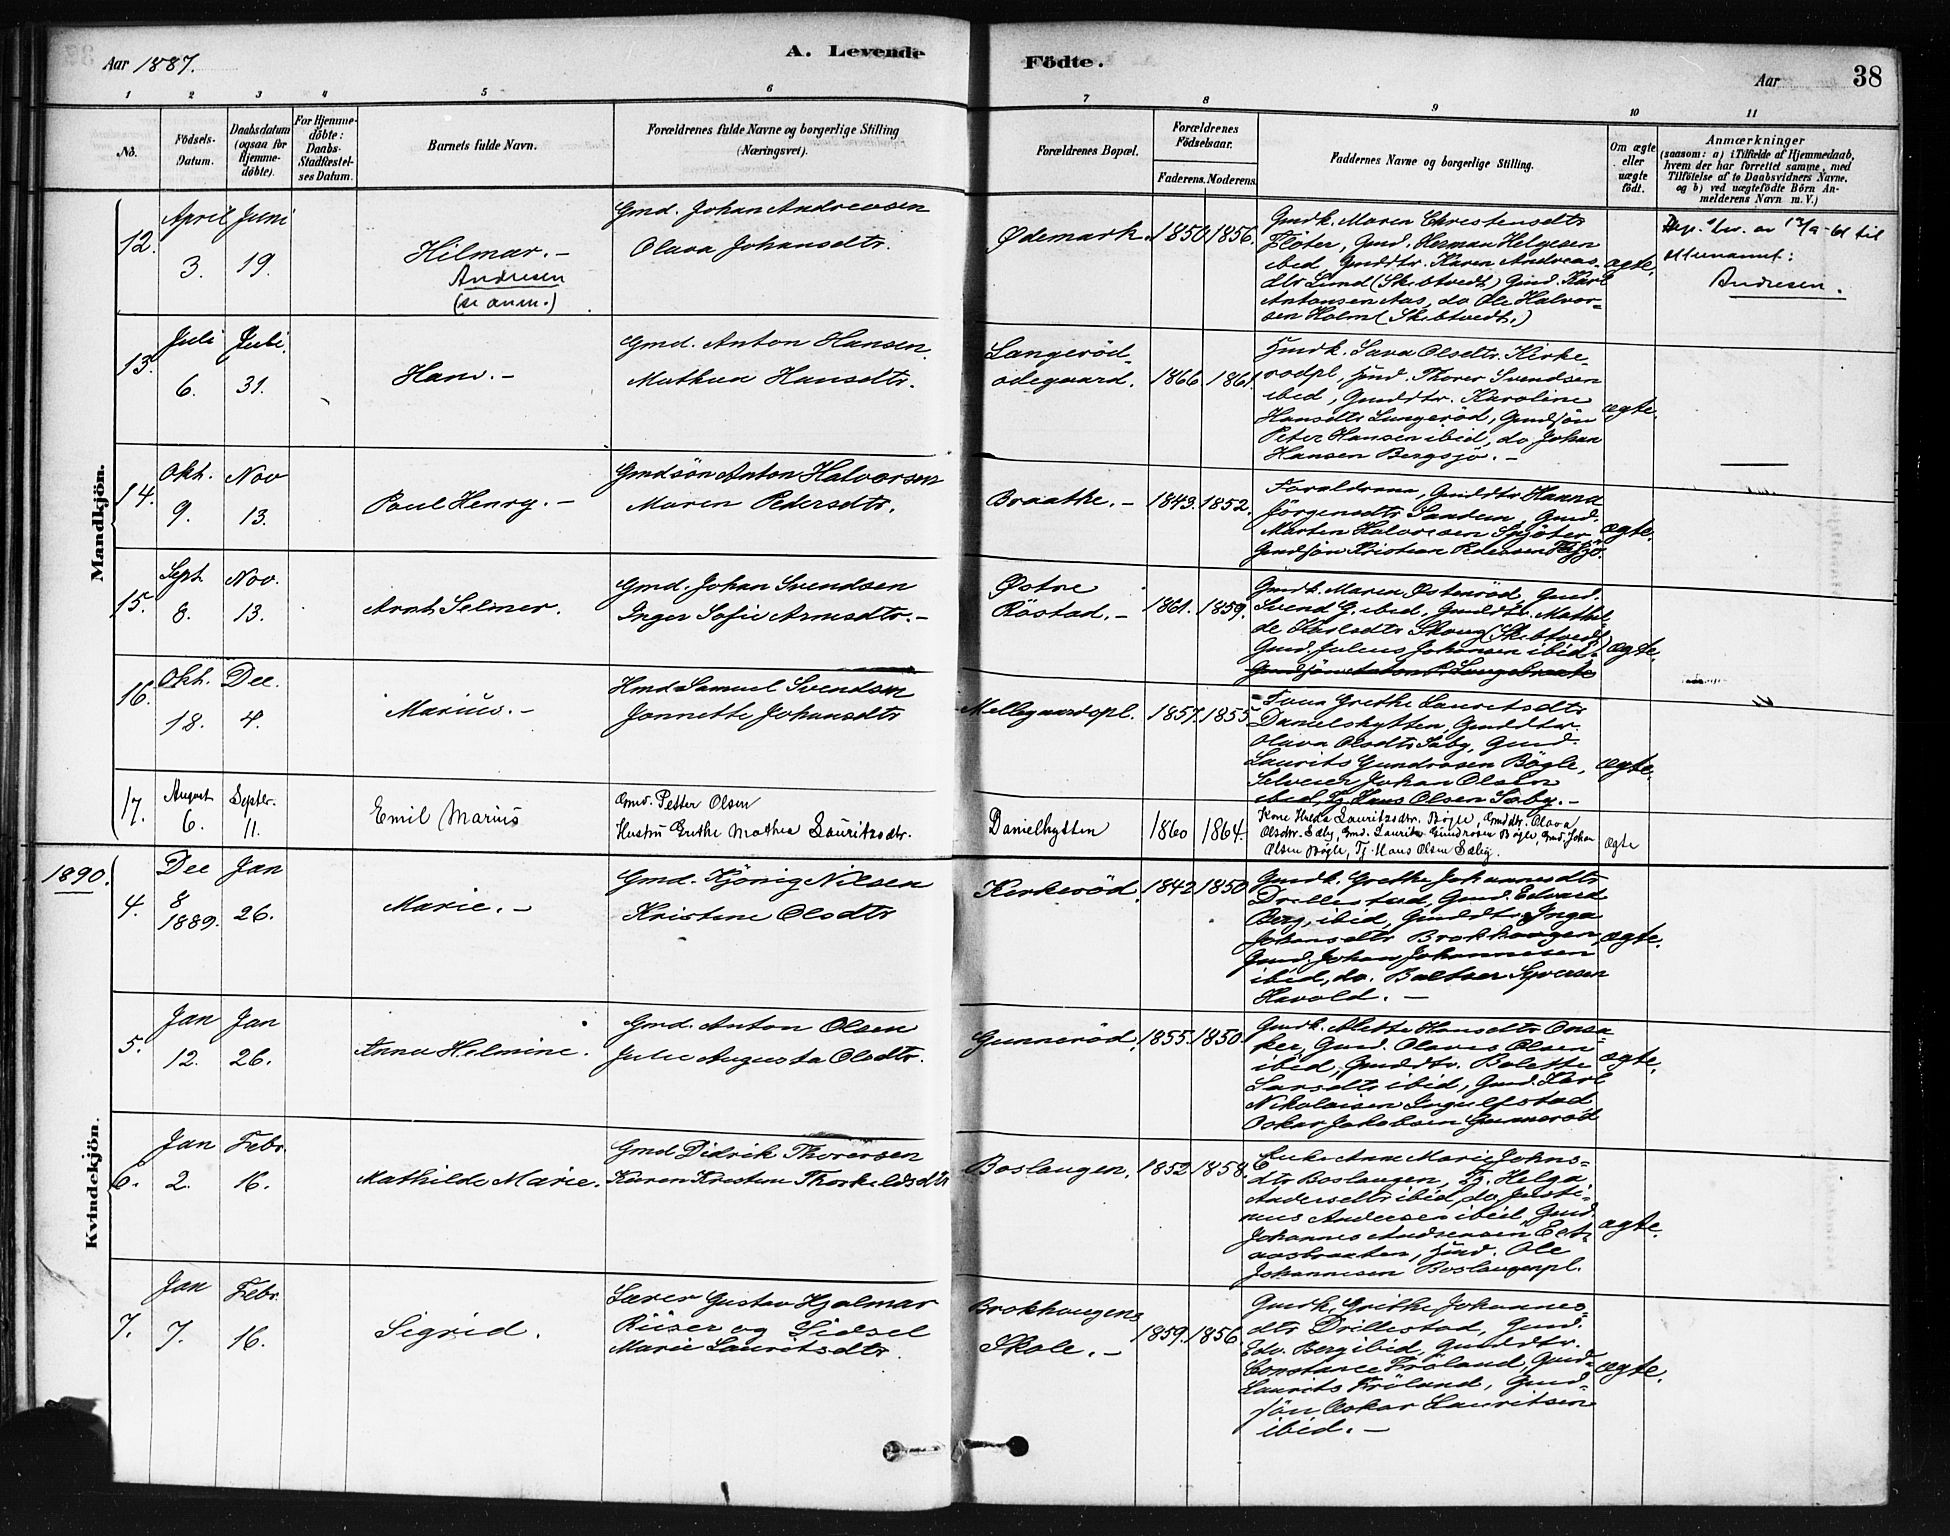 Aar 1887.
A. Levende
Födte.
Aar
38
1 2 3 4 5 6 7 8 9 10 11
No.
Födsels-
Datum.
Daabsdatum
(ogsaa for
Hjemme-
döbte).
For Hjemme-
döbte:
Daabs-
Stadfæstel-
ses Datum.
Barnets fulde Navn.
Forældrenes fulde Navne og borgerlige Stilling
(Næringsvei).
Forældrenes Bopæl.
Forældrenes
Födselsaar.
Faderens. Moderens.
Faddernes Navne og borgerlige Stilling.
Om ægte
eller
uægte
födt.
Anmærkninger
(saasom: a) i Tilfælde af Hjemmedaab,
hvem der har forrettet samme, med
Tilföielse af to Daabsvidners Navne.
og b) ved uægtefödte Börn An-
melderens Navn m. V.)
Mandkjön.
12.
April
3.
Juni
19.
Hilmar. -
Andresen
(se anm.)
Gmd. Johan Andreasen
Olava Johansdtr.
Ødemark.
1850 1856.
Gmdk. Maren Christensdtr
Fløter, Gmd. Herman Helgesen
ibid, Gmddtr. Karen Andreas-
dtr Lund (Skibtvedt) Gmd. Karl
Antonsen Aas, do Ole Halvor-
sen Holm (Skibtvedt.)
ægte.
til
etternamnet:
Andresen.
13.
Juli
6.
Juli.
31.
Hans. -
Gmd. Anton Hansen.
Mathea Hansdtr.
Langeröd-
ødegaard.
1866 1861.
Hmdk. Lava Olsdtr. Kirke-
rödpl, Hmd. Thorer Svendsen
ibid, Gmddtr. Karoline
Hansdtr Langeröd, Gmdsön
Peter Hansen ibid, do Johan
Hansen Bergsjö. -
ægte.
14.
Okt.
9.
Nov
13.
Paul Henry. -
Gmdsön Anton Halvorsen
Maren Pedersdtr.
Braathe. -
1843. 1852.
Forældrene, Gmddtr Hanna
Jörgensdtr Sandem, Gmd.
Marten Halvorsen
Gmdsön Kristian Pedersen
ægte.
15.
Sept.
8.
Nov.
13.
Arnt Selmer.
Gmd. Johan Svendsen
Inger Sofie Arnesdtr. -
Østre
Röstad. -
1861. 1859.
Gmdk. Maren Østeröd, Gmd.
Svend G. ibid, Gmddtr. Mathil-
de Karlsdtr Skaug (Skibtvedt)
Gmd. Julius Johansen ibid.
ægte.
16.
Okt.
18.
Dec.
4.
Marius. -
Hmd Samuel Svendsen
Jannette Johansdtr
Mellegaardspl.
1857. 1855
Grethe Lauritsdtr
Danielshytten, Gmddtr.
Olava Olsdtr Säby, Gmd.
Laurits Gundrosen Bögle,
Selveier Johan Olsen
ibid, Tj. Hans Olsen Säby. -
ægte.
17.
August
6.
Septbr.
11.
Emil Marius
Gmd. Petter Olsen
Hustru Grethe Mathea Lauritzsdtr.
Danielhytten
1860 1864.
Kone Hulda Lauritzsdtr. Bögle, Gmddtr. Olava
Olsdtr. Sæby, Gmd. Lauritz Gundrosen Bögle, Gmd. Johan
Olsen Bögle, Tj. Hans Olsen Sæby.
ægte
1890.
Kvindekjön.
4.
Dec
8
1889.
Jan
26.
Marie. -
Gmd. Kjönig Nilsen
Kristine Olsdtr
Kirkeröd.
1842 1850
Gmdk. Grethe Johannesdtr
Drillestad, Gmd. Edvard
Berg, ibid, Gmddtr. Inga
Johansdtr Brokhaugen,
Gmd. Johan Johannesen
ibid, do. Baltser Syversen
Harold. -
ægte.
5.
Jan
12.
Jan
26.
Anna Helmine.
Gmd. Anton Olsen
Julie Augusta Olsdtr.
Gunneröd.
1855. 1850
Gmdk. Alette Hansdtr Onsa-
ker, Gmd. Olaves Olsen
ibid, Gmddtr. Bolette
Larsdtr ibid, Gmd. Karl
Nikolaisen Ingulfstad
Oskar Jakobsen Gunneröd
ægte.
6.
Jan
2.
Febr.
16.
Mathilde Marie.
Gmd Didrik Thoresen
Karen Kristine Thorkildsdtr
Boslangen.
1852 1858.
Enke Anne Marie Johns-
dtr Boslangen, Tj. Helga
Andersdtr ibid, do Justi-
nus Andersen ibid, Gmd.
Johannes Andersen
Hmd. Ole
Johannesen Boslangenpl.
ægte.
7.
Jan
7.
Febr.
16.
Sigrid.
Lærer Gustav Hjalmar
Riiser og Sidsel
Marie Lauritsdtr.
Brokhaugens
Skole. -
1859. 1856.
Gmdk. Grethe Johannes-
dtr Drillestad, Gmd.
Edv. Berg ibid, Gmddtr.
Constance Fröland, Gmd.
Laurits Fröland, Gmd-
sön Oskar Lauritsen
ibid. -
ægte.